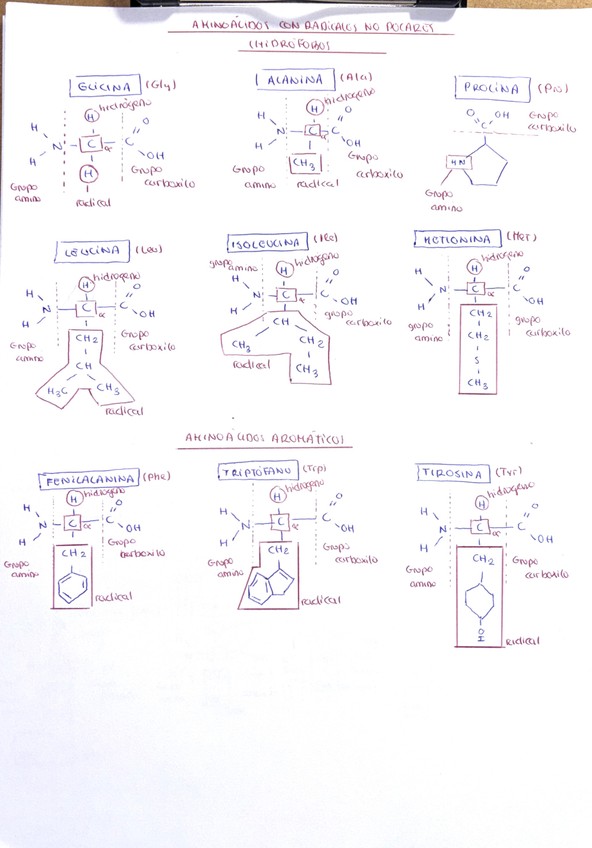 AMINOÁCIDOS CON RADICALES NO POLARES
(HIDRÓFOBOS)
GLICINA (Gly)
H hidrógeno
H
H
N
C
α
C
O
OH
H
Grupo amino
radical
Grupo carboxilo
ALANINA (Ala)
H hidrógeno
H
H
N
C
α
C
O
OH
CH3
Grupo amino
radical
Grupo carboxilo
PROLINA (Pro)
O
C
OH
Grupo carboxilo
HN
Grupo amino
LEUCINA (Leu)
H hidrógeno
H
H
N
C
α
C
O
OH
CH2
CH
H3C
CH3
Grupo amino
Grupo carboxilo
radical
ISOLEUCINA (Ile)
grupo amino
H hidrógeno
H
H
N
C
α
C
O
OH
grupo carboxilo
CH
CH3
CH2
CH3
radical
METIONINA (Met)
H hidrógeno
H
H
N
C
α
C
O
OH
grupo amino
grupo carboxilo
CH2
CH2
S
CH3
AMINOÁCIDOS AROMÁTICOS
FENILALANINA (Phe)
H hidrógeno
H
H
N
C
α
C
O
OH
Grupo amino
Grupo carboxilo
CH2
radical
TRIPTÓFANO (Trp)
H hidrógeno
H
H
N
C
α
C
O
OH
Grupo amino
Grupo carboxilo
CH2
radical
TIROSINA (Tyr)
H hidrógeno
H
H
N
C
α
C
O
OH
Grupo amino
Grupo carboxilo
CH2
O
H
radical